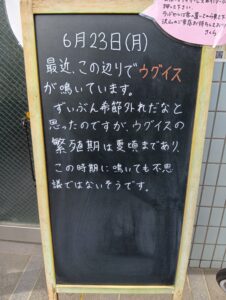 押して下さい。
さくら
6月23日(月)
最近、この辺りでウグイス
が鳴いています。
ずいぶん季節外れだなと
思ったのですが、ウグイスの
繁殖期は夏頃まであり、
この時期に鳴いても不思
議ではないそうです。